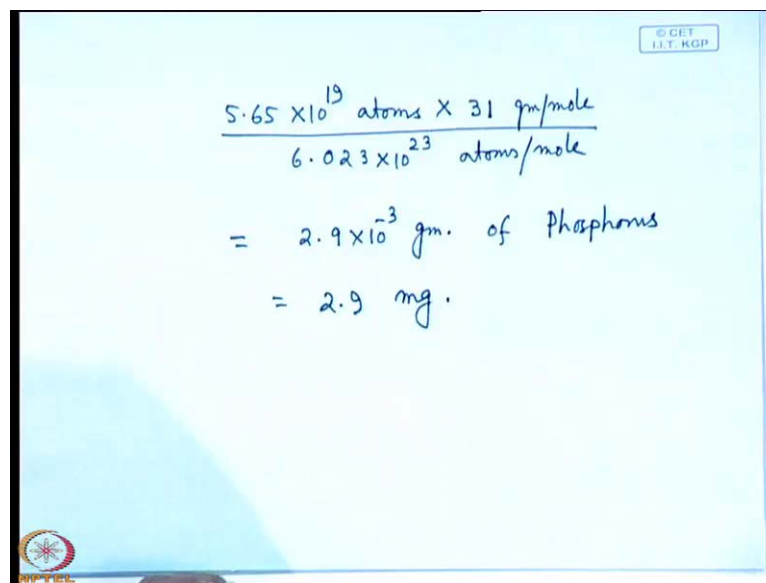 © CET
I.I.T. KGP
5.65 X10^19 atoms X 31 gm/mole
6.023 X10^23 atoms/mole
= 2.9 X10^-3 gm. of Phosphorus
= 2.9 mg.
NPTEL